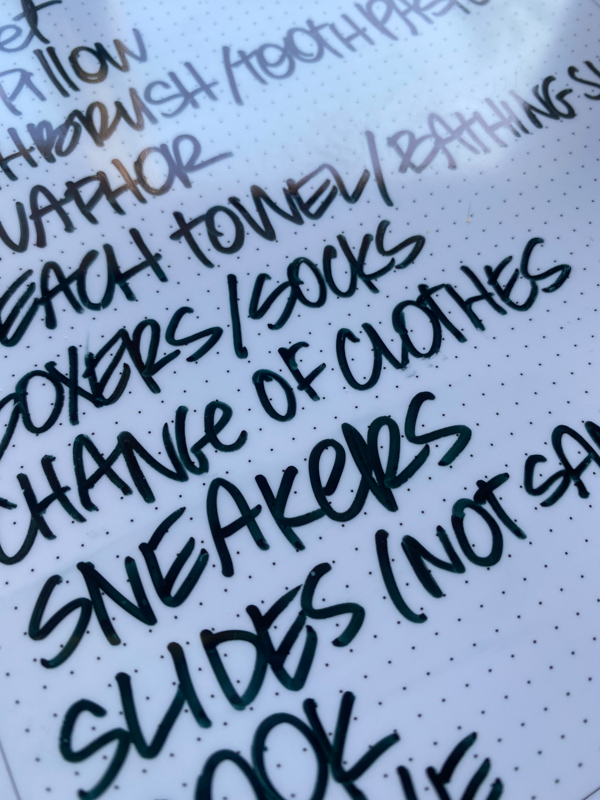 et
Pillow
HBRUSH/TOOTHPAS
UAPHOR
EACH TOWEL/BATHING SU
BOXERS/SOCKS
CHANGE OF CLOTHES
SNEAKERS
SLIDES (NOT SAN
OOK